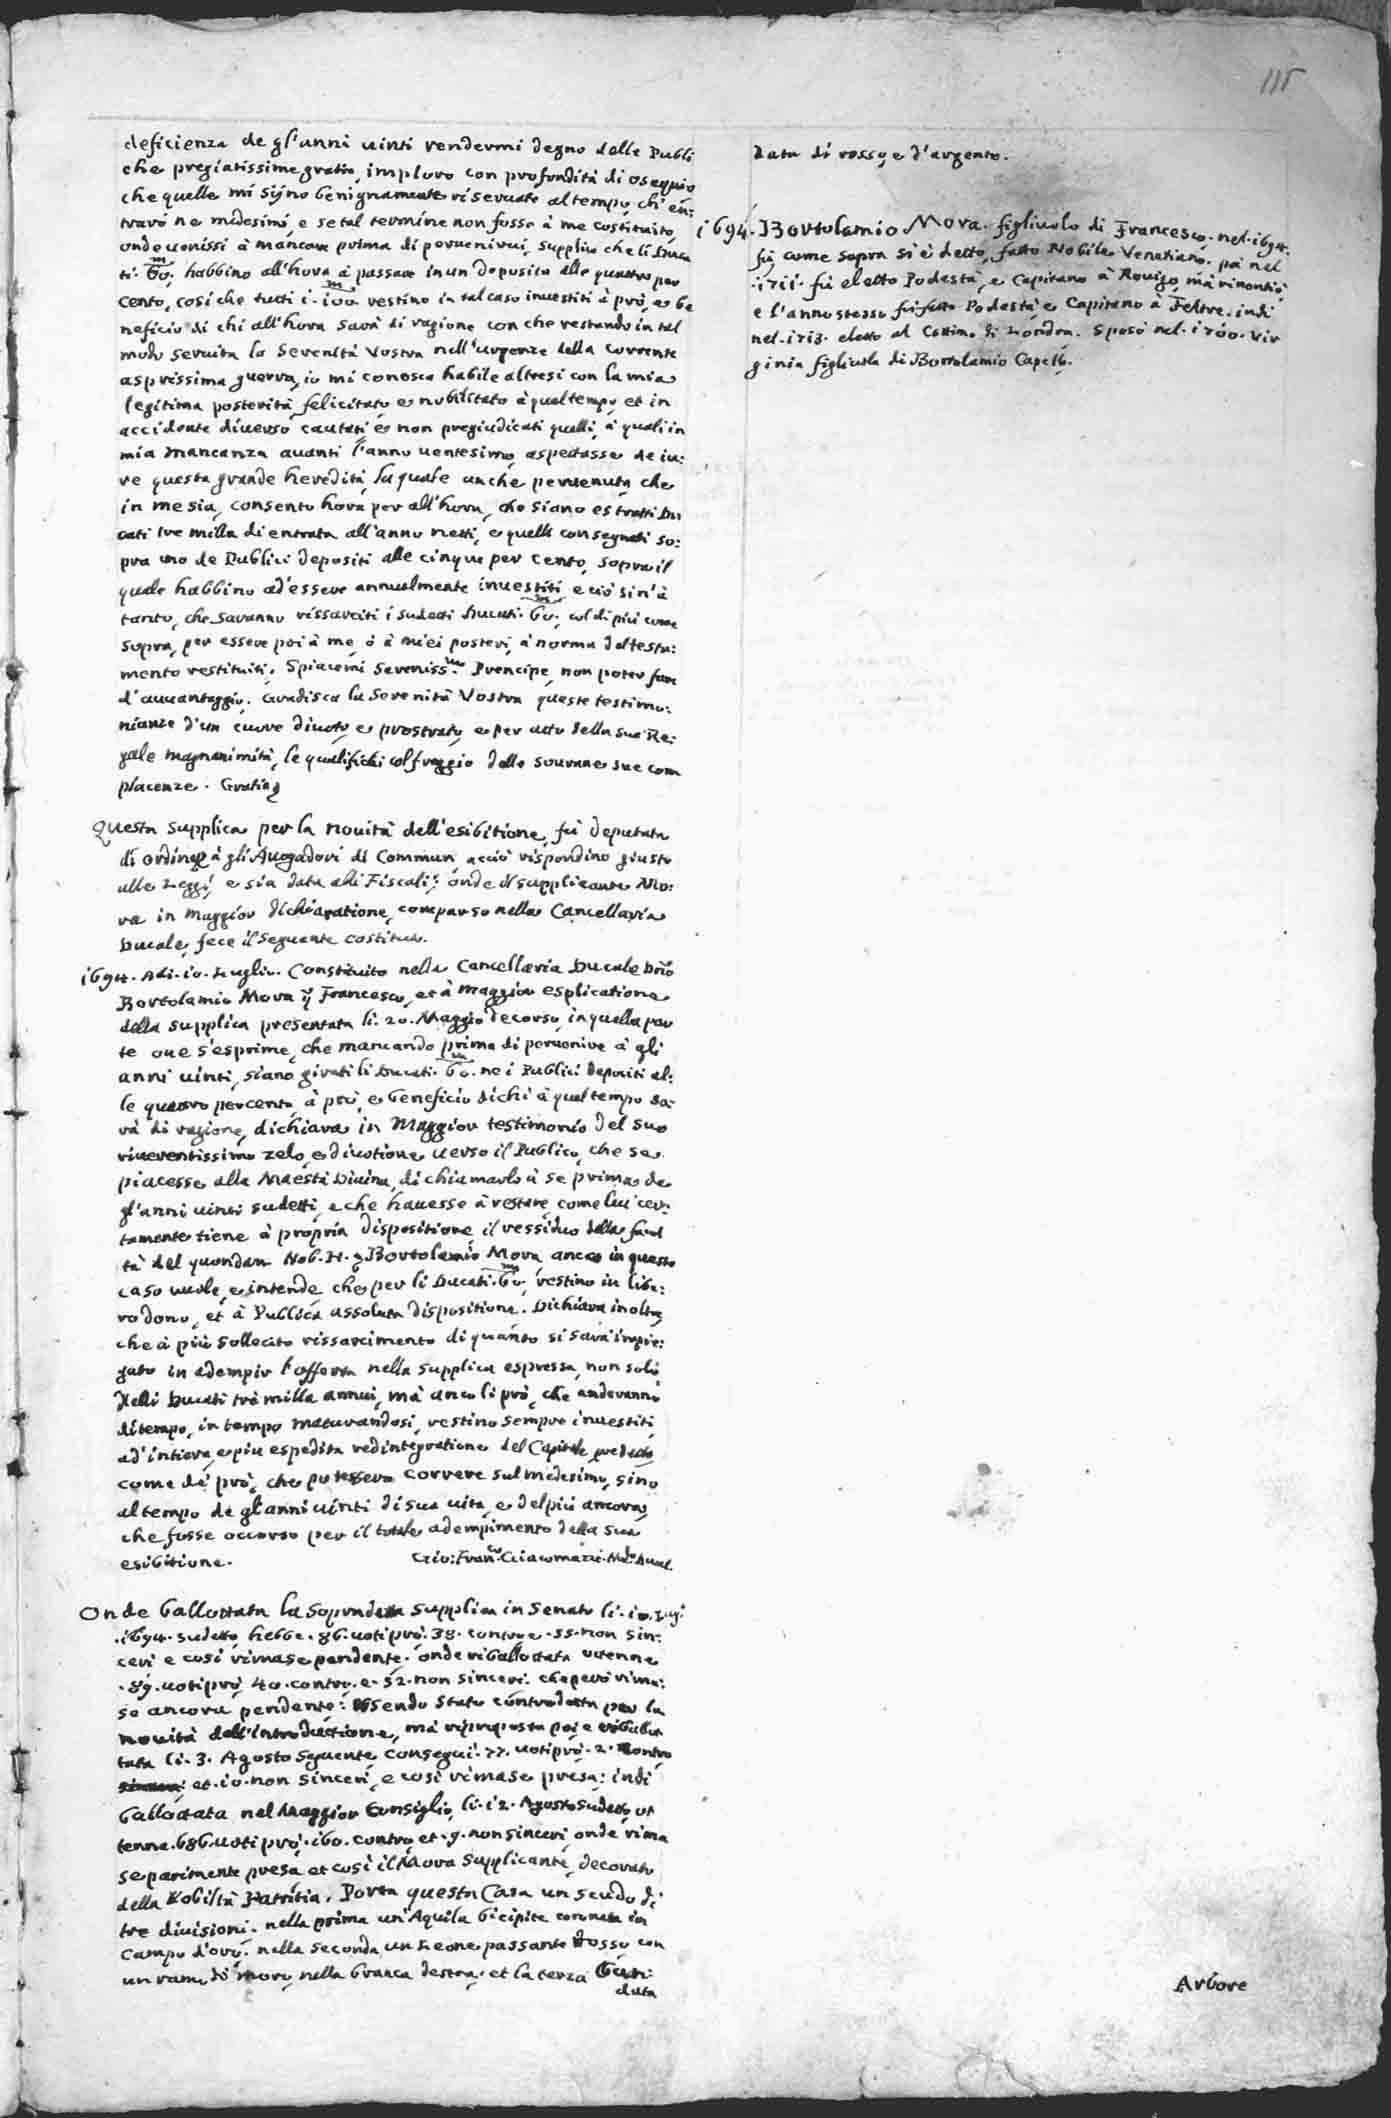 115
deficienza de gl'anni uinti rendermi degno delle Publi
che pregiatissime gratie, imploro con profondità di osequio
che quelle mi sijno benignamente riseruate al tempo, ch' en:
trarò ne medesimi, e se tal termine non fosse à me costituito,
onde uenissi à mancare prima di peruenirui, supplico che li Duca
ti. 60. m habbino all'hora à passare in un deposito alle quattro per
cento, così che tutti i. 100. m restino in tal caso inuestiti à prò, e be
neficio di chi all'hora sarà di ragione con che restando in tal
modo seruita la Serenità Vostra nell'urgenze della corrente
asprissima guerra, io mi conosca habile altresi con la mia
legitima posterità, felicitato, e nobilitato à qual tempo, et in
accidente diuerso cautati e non pregiudicati quelli, à quali in
mia mancanza auanti l'anno uentesimo aspettasse de iu:
re questa grande heredità, la quale anche peruenuta che
in me sia, consento hora per all'hora, che siano estratti Du
cati tre milla di entrata all'anno netti, e quelli consegnati so:
pra uno de Publici depositi alle cinque per cento, sopra il
quale habbino ad'essere annualmente inuestiti, e ciò sin'à
tanto, che saranno rissarciti i sudetti Ducati. 60. m col di più come
sopra, per essere poi à me, ò à miei posteri, à norma del testa:
mento restituiti. Spiacemi Sereniss.mo Prencipe, non poter fare
d'auuantaggio. Gradisca la Serenità Vostra queste testimo:
nianze d'un cuore diuoto, e prostrato, e per atto della sua Re:
gale magnanimità, le qualifichi col freggio delle sourane sue com
piacenze. Gratie
Questa supplica per la nouità dell'esibitione, fù deputata
di ordine à gli Auogadori di Commun acciò rispondino giusto
alle Leggi, e sia data alli Fiscali; onde il supplicante Mo:
ra in maggior dichiaratione, comparso nella Cancellaria
Ducale, fece il seguente costituto.
1694. Adi. 10. Luglio. Constituito nella Cancellaria Ducale Dno
Bortolamio Mora q Francesco, et à maggior esplicatione
della supplica presentata li. 20. Maggio decorso, in quella par
te oue s'esprime, che mancando prima di peruenire à gli
anni uinti, siano girati li Ducati. 60. m ne i Publici depositi al:
le quattro per cento, à prò, e beneficio di chi à qual tempo sa:
rà di ragione, dichiara in maggior testimonio del suo
riuerentissimo zelo, e diuotione uerso il Publico, che se
piacesse alla Maestà Diuina, di chiamarlo à se prima de
gl'anni uinti sudetti, e che hauesse à restare come lui cer:
tamente tiene à propria dispositione il ressiduo della facol
tà del quondam Nob. H. s Bortolamio Mora, anco in questo
caso uuole, e intende che per li Ducati. 60. m restino in libe:
ro dono, et à Publica assoluta dispositione. Dichiara inoltre
che à più sollecito rissarcimento di quanto si sarà impie:
gato in adempir l'offerta nella supplica espressa, non solo
delli Ducati trè milla annui, mà anco li prò, che anderanno
di tempo, in tempo maturandosi, restino sempre inuestiti,
ad'intiera, e più espedita redintegratione del Capitale predetto
come de prò, che potessero correre sul medesimo, sino
al tempo de gl'anni uinti di sua uita, e del più ancora
che fosse occorso per il totale adempimento della sua
esibitione.
Ciacomazzi. Nod.o Ducal
Onde ballottata la sopradetta supplica in Senato li. 10. Lug:
.1694. sudetto hebbe. 86. uoti prò. 38. contro e. 55. non sin:
ceri e così rimase pendente. onde riballottata ottenne
.89. uoti prò, 40. contro, e. 52. non sinceri. che però rima:
se ancora pendente: essendo stata contradetta per la
nouità dell'introduttione, mà riproposta poi e riballot
tata li. 3. Agosto seguente, conseguì. 77. uoti prò. 2. contro
et. 10. non sinceri, e così rimase presa; indi
ballottata nel Maggior Consiglio, li. 12. Agosto sudetto, ot
tenne. 686. uoti prò. 160. contro, et. 9. non sinceri, onde rima
se parimente presa et così il Mora supplicante, decorato
della Nobiltà Patritia. Porta questa Casa un scudo di
tre diuisioni. nella prima un'Aquila bicipite coronata in
campo d'oro. nella seconda, un Leone passante rosso con
un ramo di moro, nella branca destra. et la terza ban:
data
data di rosso, e d'argento.
1694. Bortolamio Mora. figliuolo di Francesco. nel. 1694.
fù, come sopra si è detto, fatto Nobile Venetiano. poi nel
.1711. fù eletto Podestà, e Capitano à Rouigo, mà rinontiò,
e l'anno stesso fù fatto Podestà e Capitano à Feltre. indi
nel. 1713. eletto al Cottimo di Londra. Sposò nel. 1700. Vir
ginia figliuola di Bortolamio Capello.
Arbore